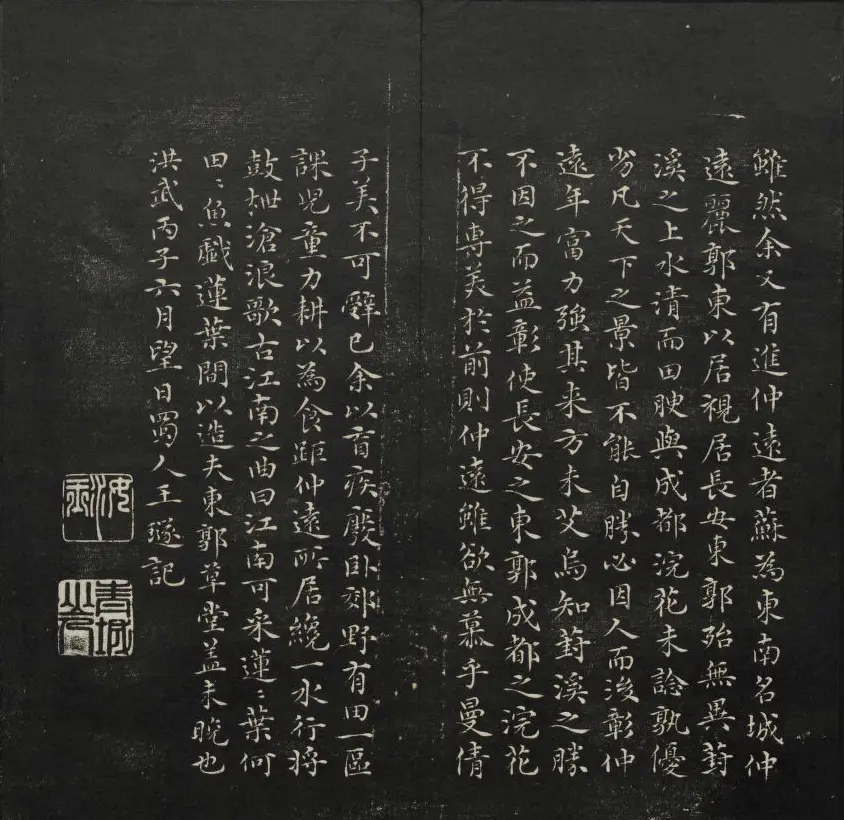 雖然余又有進仲遠者蘇為東南名城仲
遠麗郭東以居視居長安東郭殆無異葑
溪之上水清而田腴與成都浣花未諗孰優
劣凡天下之景皆不能自勝必因人而後彰仲
遠年富力強其来方未艾烏知葑溪之勝
不因之而益彰使長安之東郭成都之浣花
不得專美於前則仲遠雖欲無慕乎曼倩
子美不可辭已余以肓疾廢卧郊野有田一區
課兒童力耕以為食距仲遠所居纔一水行將
鼓枻滄浪歌古江南之曲曰江南可采蓮蓮葉何
田田魚戲蓮葉間以造夫東郭草堂盖未晚也
洪武丙子六月望日蜀人王璲記
汝
青城